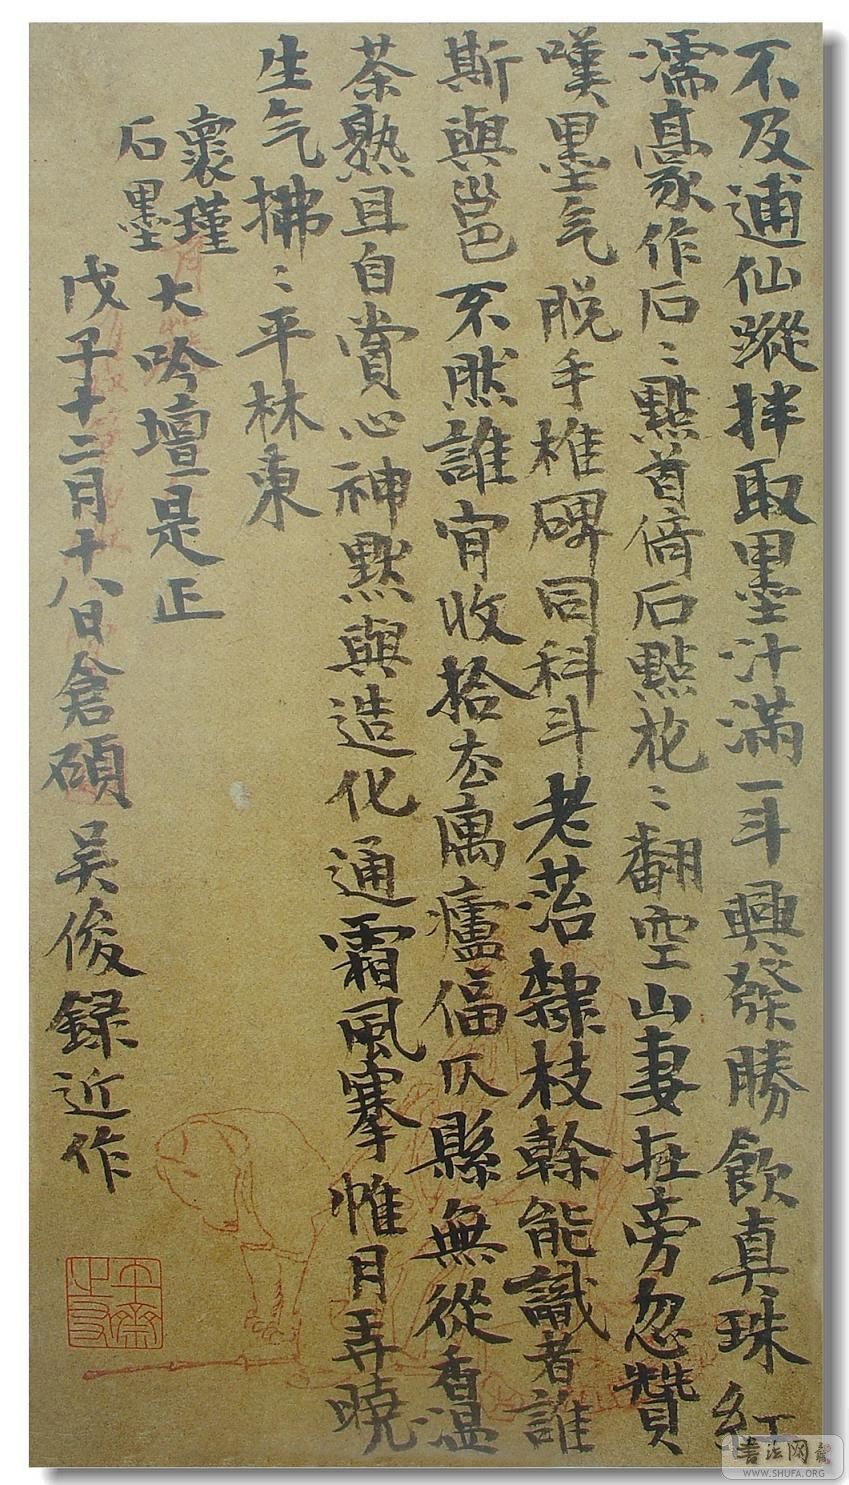 不及逋仙蹤拌取墨汁滿一斗興發勝飲真珠紅
濡豪作石〻點首倚石點花〻翻空山妻在旁忽贊
嘆墨气脱手椎碑同科斗老荅隸枝榦能識者誰
斯與邕不然誰肯收拾去寓廬偪仄縣無從香温
茶熟且自賞心神默與造化通霜風搴帷月弄曉
生气拂〻平林東
褱瑾
石墨
大吟壇是正
戊子十二月十八日倉碩吴俊録近作
書法网
WWW.SHUFA.ORG